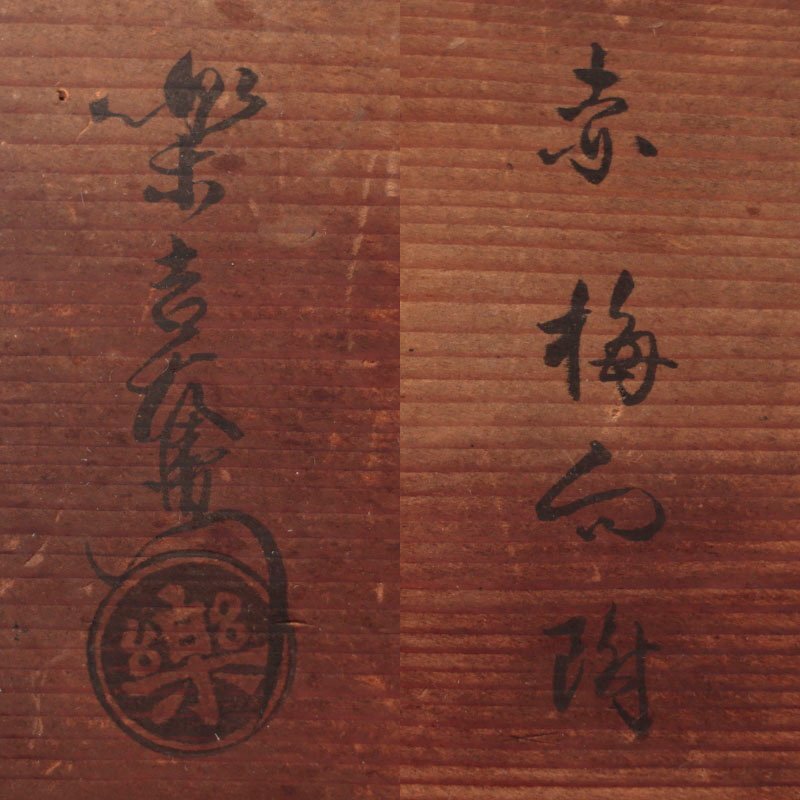 赤梅向附
樂吉左衛門
樂